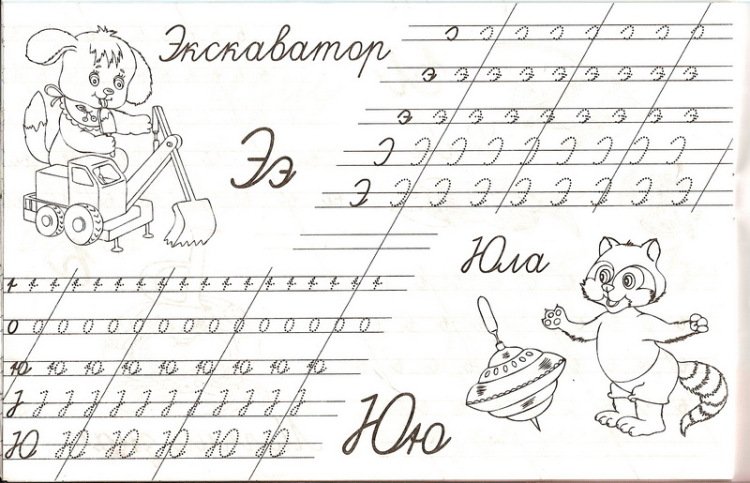 Экскаватор
э э э э э э э э э
э э э э э э э э э
Ээ
Э Э Э Э Э Э Э Э Э
Юла
о о о о о о о о о о о о о о о о
ю ю ю ю ю ю ю ю
Ю Ю Ю Ю Ю Ю
Юю